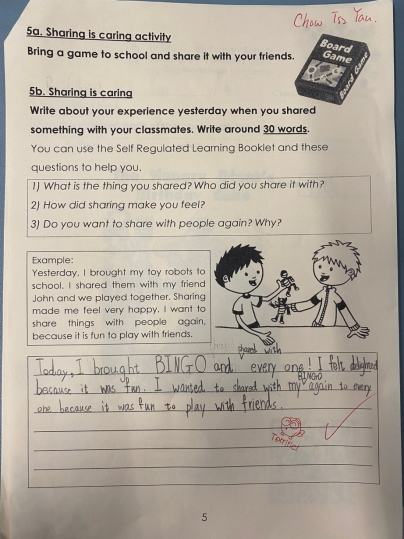 Chow Tsz Yau.
5a. Sharing is caring activity
Bring a game to school and share it with your friends.
Board
Game
Board Game
5b. Sharing is caring
Write about your experience yesterday when you shared
something with your classmates. Write around 30 words.
You can use the Self Regulated Learning Booklet and these
questions to help you.
1) What is the thing you shared? Who did you share it with?
2) How did sharing make you feel?
3) Do you want to share with people again? Why?
Example:
Yesterday, I brought my toy robots to
school. I shared them with my friend
John and we played together. Sharing
made me feel very happy. I want to
share things with people again,
because it is fun to play with friends.
shared with
Today, I brought BINGO and every one! I felt delighted
BINGO
because it was fun. I wanted to shared with my again to every
one because it was fun to play with friends.
Terrific!
5